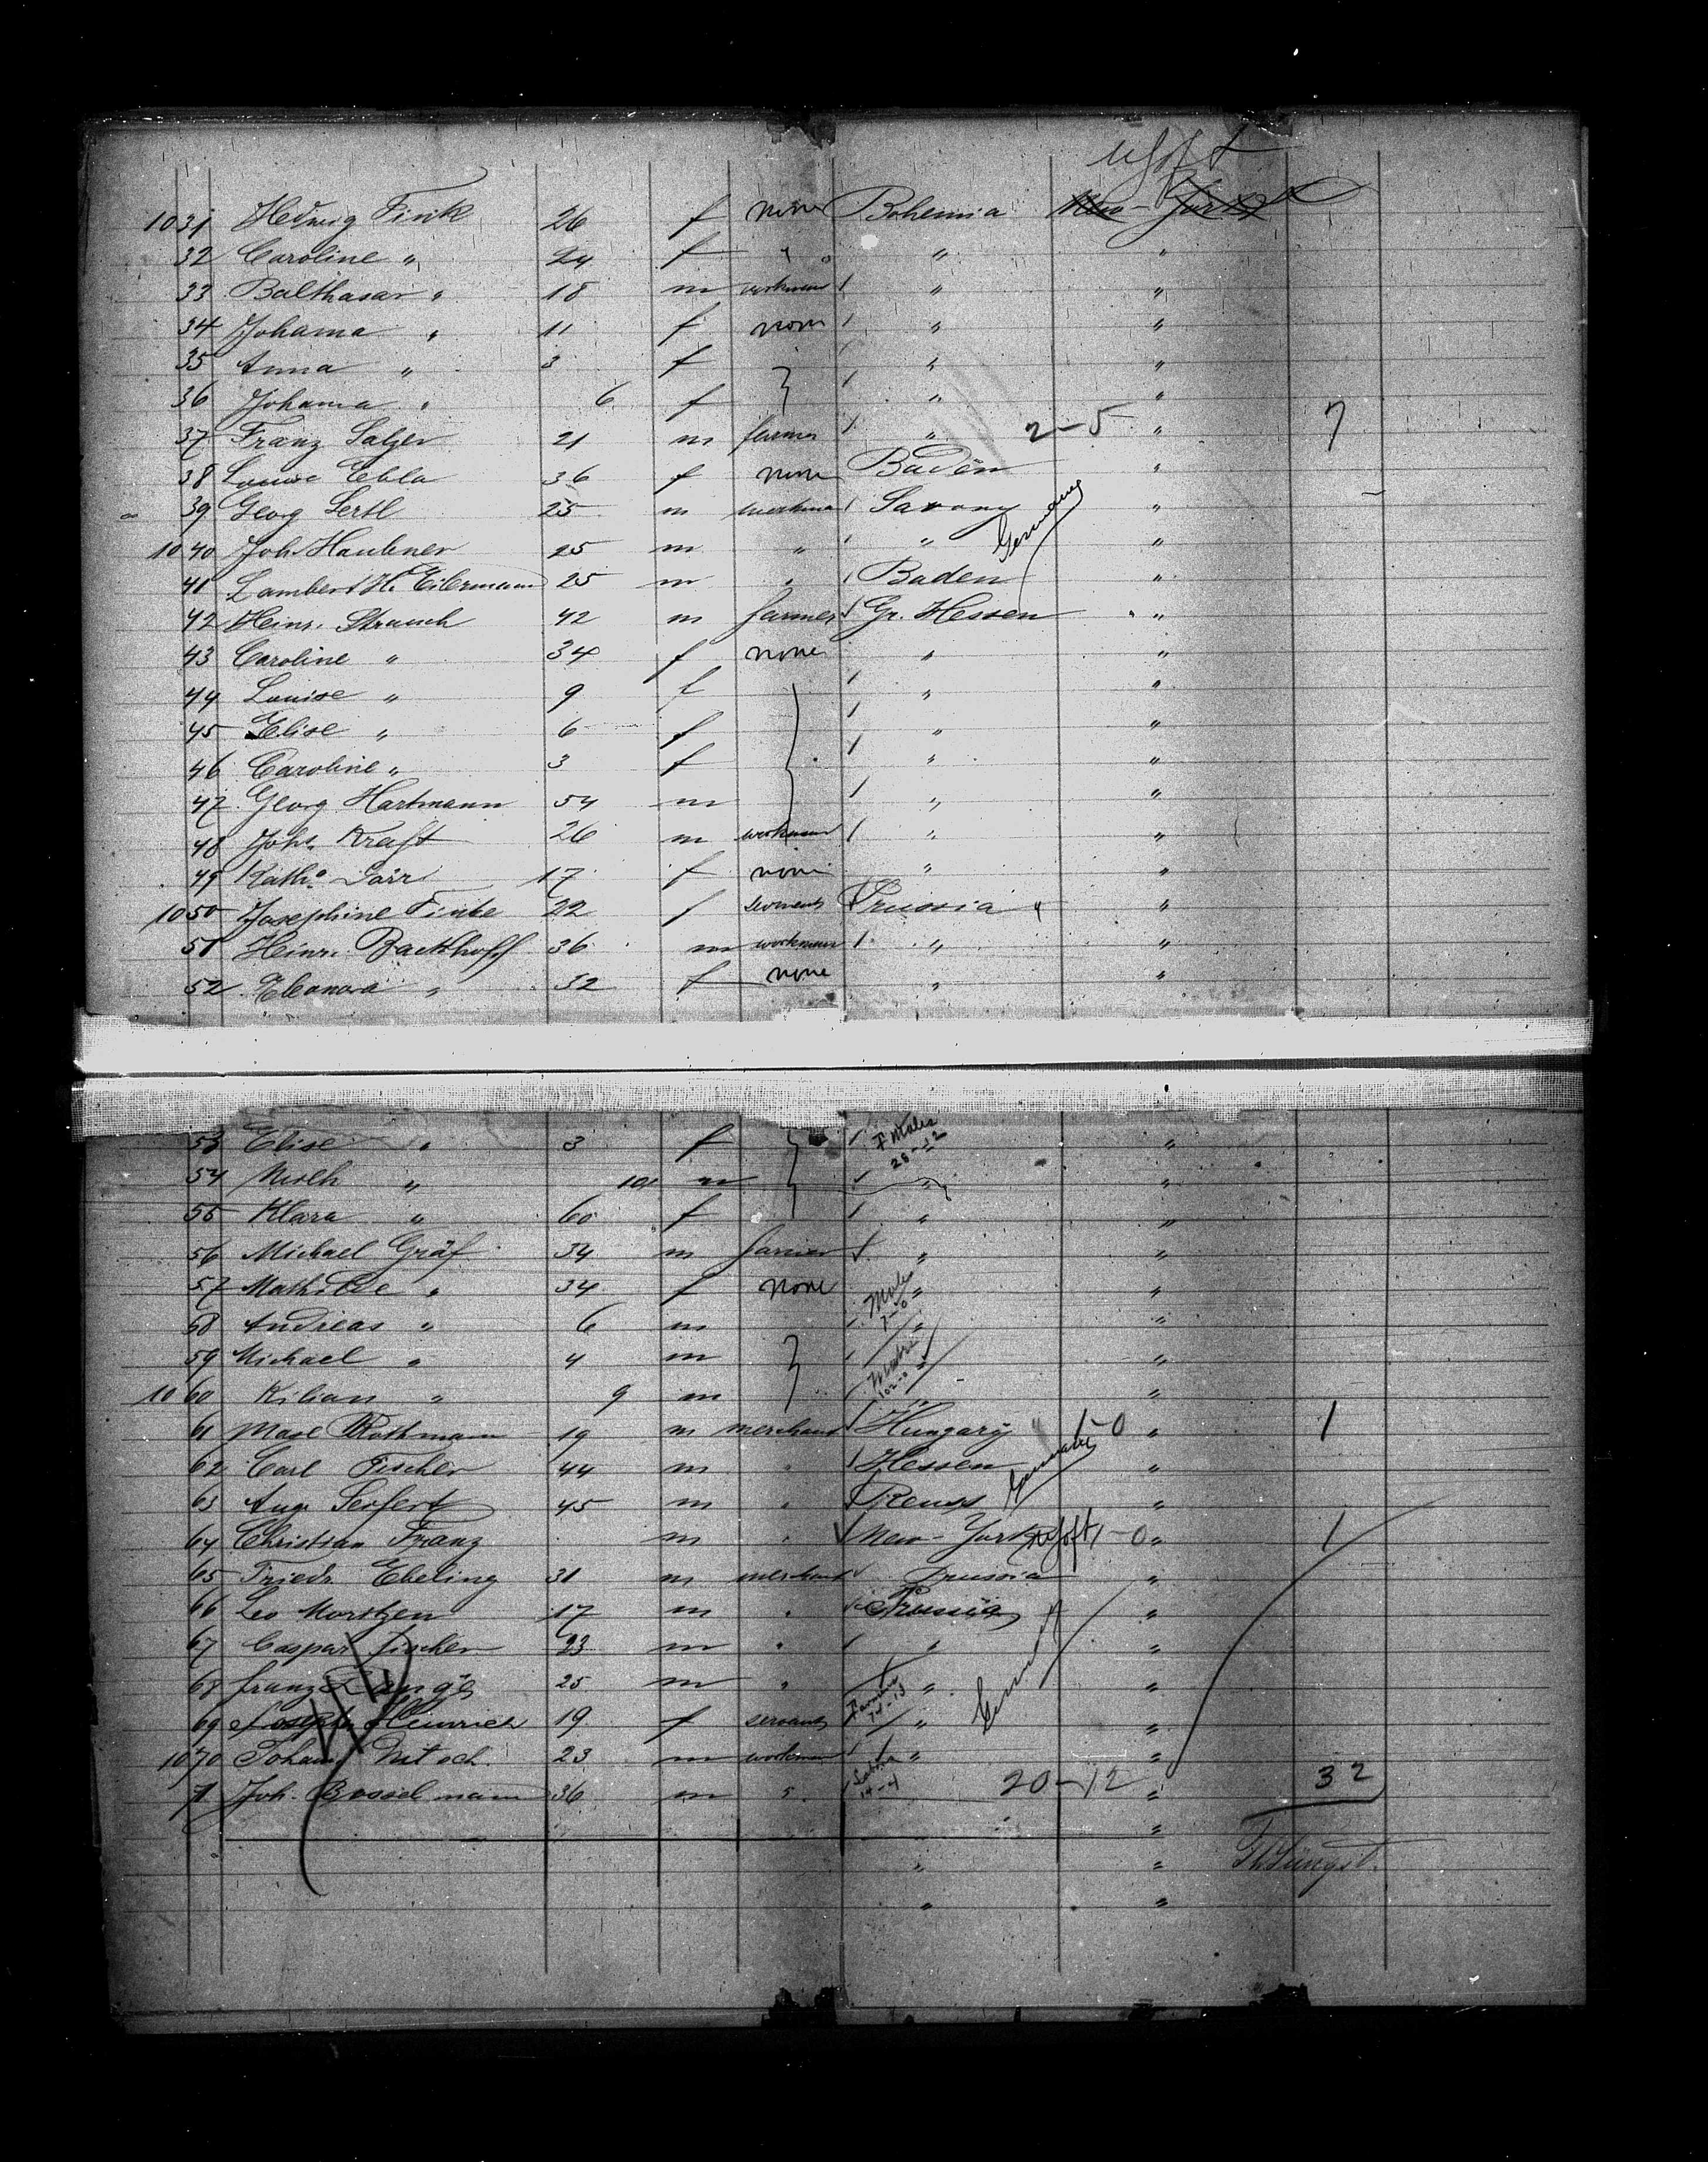 1031 Hedwig Fink 26 f none Bohemia New-York
32 Caroline " 24 f " " "
33 Balthasar " 18 m workman " "
34 Johanna " 11 f none " "
35 Anna " 3 f " "
36 Johanna " 6 f " "
37 Franz Salzer 21 m farmer " 2-5 " 7
38 Louise Ebla 36 f none Baden "
39 Georg Sertl 25 m workman Saxony "
1040 Joh. Haubner 25 m " " Germany "
41 Lambert H. Eilermann 25 m " Baden "
42 Heinr. Strauch 42 m farmer Gr. Hessen "
43 Caroline " 34 f none " "
44 Louise " 9 f " "
45 Elise " 6 f " "
46 Caroline " 3 f " "
47 Georg Hartmann 54 m " "
48 Joh. Kraft 26 m workman " "
49 Kath. Dörr 17 f none " "
1050 Josephine Finke 22 f servant Prussia "
51 Heinr. Backhoff 36 m workman " "
52 Eleonora " 32 f none " "
53 Elise " 3 f "
54 " 10 m " "
55 Klara " 60 f " "
56 Michael Gräf 34 m farmer " "
57 Mathilde " 34 f none " "
58 Andreas " 6 m " "
59 Michael " 4 m "
1060 Kilian " 9 m "
61 Rothmann 19 m merchant Hungary 1-0 " 1
62 Carl Fischer 44 m " Hessen "
63 Aug. Seifert 45 m " Reuss "
64 Christian Franz m " New-York 1-0 " 1
65 Friedr. Ebeling 31 m merchant Prussia "
66 Leo Moritzen 17 m " Prussia "
67 Caspar Fischer 23 m " " "
68 Franz 25 m " " "
69 Joseph Heinrich 19 f servant " "
1070 Johann 23 m workman " "
71 Joh. Bosselmann 36 m " 20-12 " 32